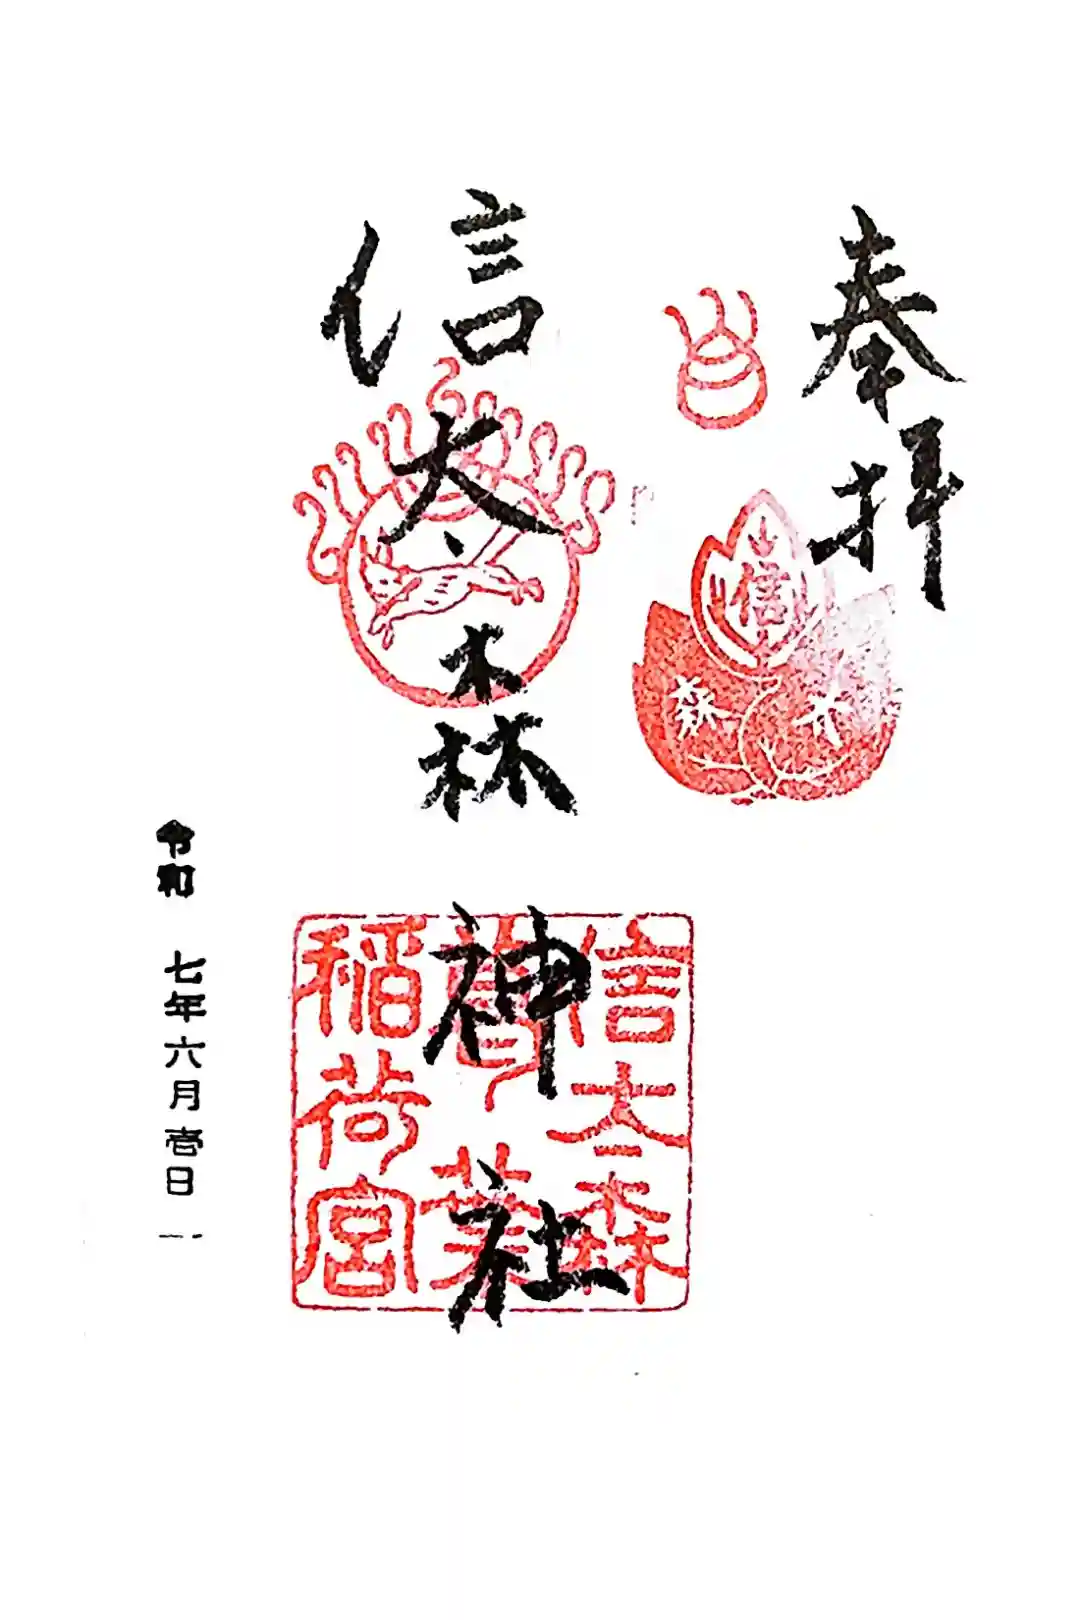 奉拝
信太森神社
信太森
葛葉
稲荷宮
令和 七年六月壱日